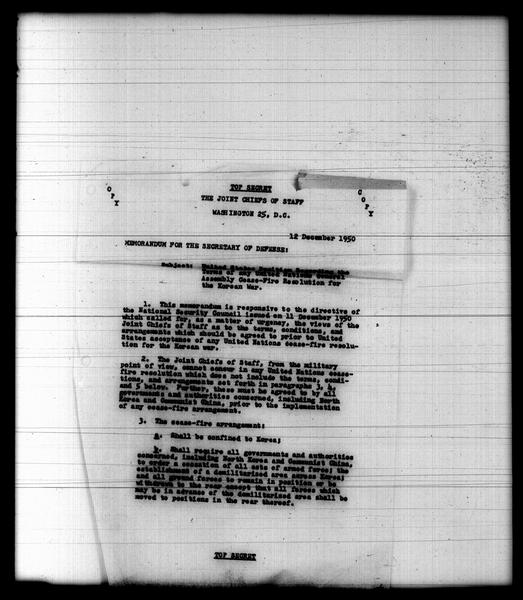 TOP SECRET
COPY
COPY
THE JOINT CHIEFS OF STAFF
WASHINGTON 25, D.C.
12 December 1950
MEMORANDUM FOR THE SECRETARY OF DEFENSE:
Subject: United States Position Regarding the
Terms of any United Nations General
Assembly Cease-Fire Resolution for
the Korean War.
1. This memorandum is responsive to the directive of
the National Security Council issued on 11 December 1950
which called for, as a matter of urgency, the views of the
Joint Chiefs of Staff as to the terms, conditions, and
arrangements which should be agreed to prior to United
States acceptance of any United Nations cease-fire resolu-
tion for the Korean war.
2. The Joint Chiefs of Staff, from the military
point of view, cannot concur in any United Nations cease-
fire resolution which does not include the terms, condi-
tions, and arrangements set forth in paragraphs 3, 4,
and 5 below. Further, these must be agreed to by all
governments and authorities concerned, including North
Korea and Communist China, prior to the implementation
of any cease-fire arrangement.
3. The cease-fire arrangement:
a. Shall be confined to Korea;
b. Shall require all governments and authorities
concerned, including North Korea and Communist China,
to order a cessation of all acts of armed force; the
establishment of a demilitarized area across Korea;
and all ground forces to remain in position or be
withdrawn to the rear except that all forces which
may be in advance of the demilitarized area shall be
moved to positions in the rear thereof.
TOP SECRET